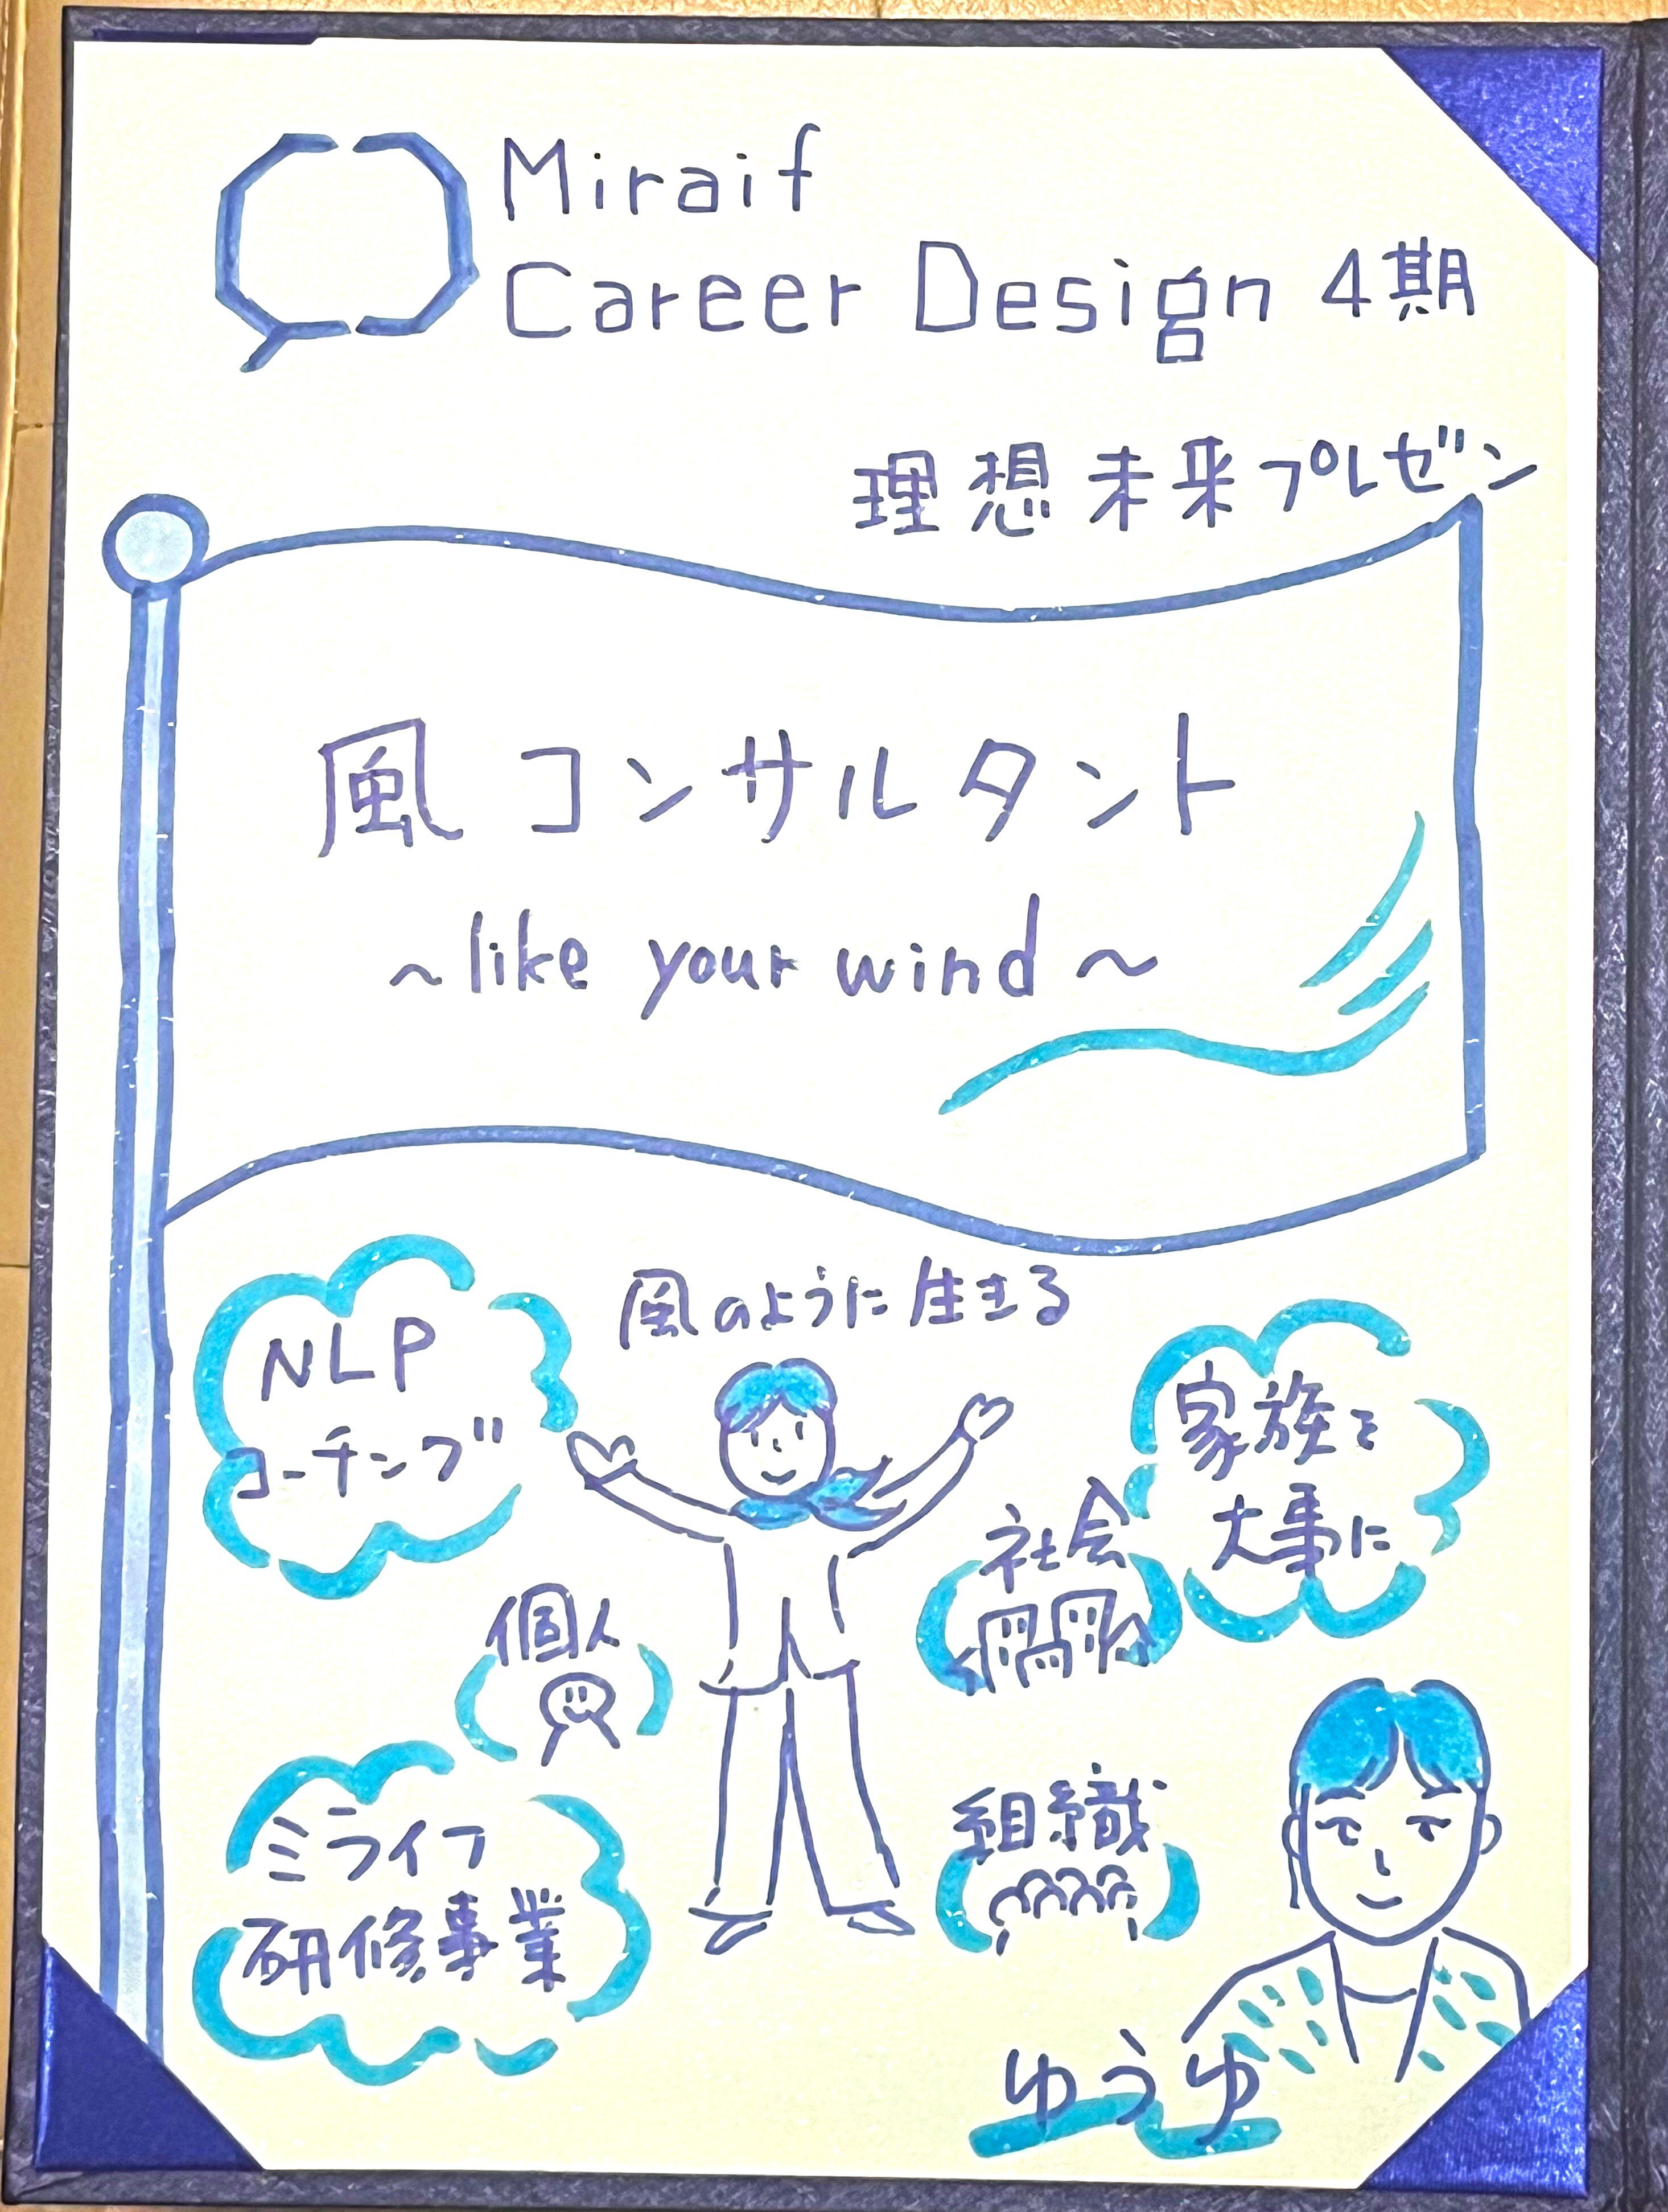 Miraif
Career Design 4期
理想未来プレゼン
風コンサルタント
~like your wind~
風のように生きる
NLP
コーチング
家族を
大事に
社会
個人
組織
ミライフ
研修事業
ゆうゆ